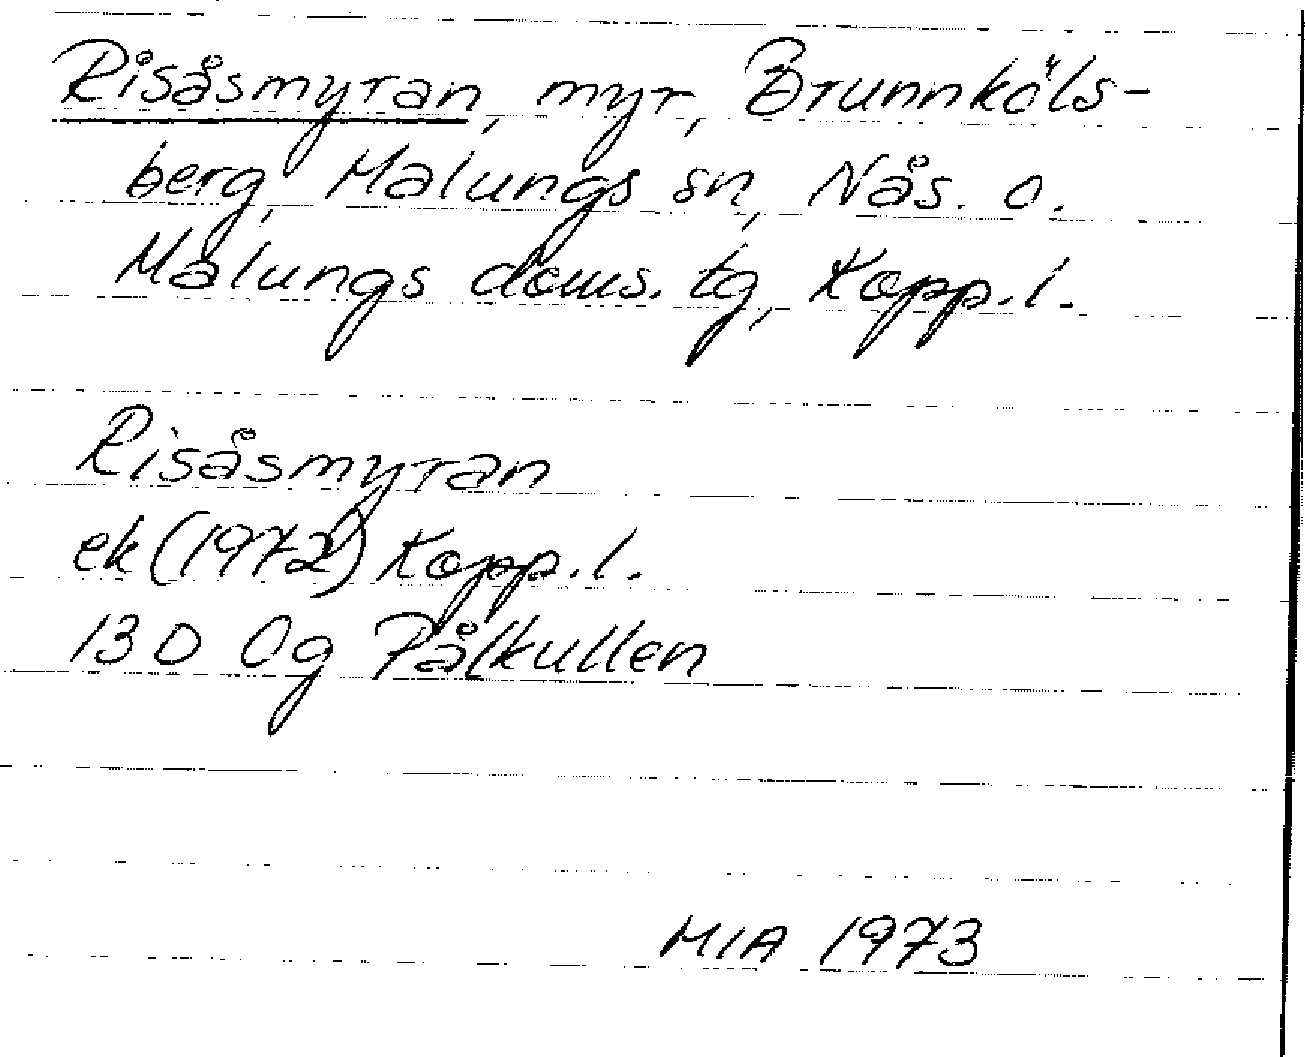 Risåsmyran, myr, Brunnköls-
berg, Malungs sn, Nås. o.
Malungs doms. tg, Kopp. l.
Risåsmyran
ek (1972) Kopp. l.
13 D 0g Pålkullen
MIA 1973